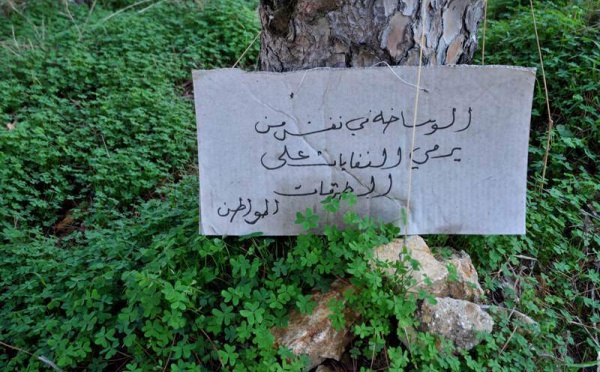 الوساخة في نفس من
يرمي النفايات على
الطرقات
المواطن